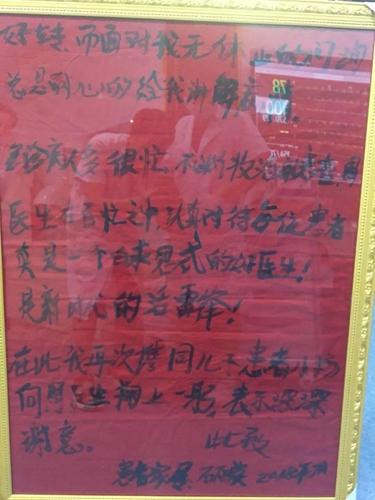 好转,而面对我无休止的询问
总是耐心的给我讲解
急诊病人多很忙,不断收治的患者,周
医生在百忙之中,认真对待每位患者
真是一个白求恩式的好医生!
是新时代的活雷锋!
在此我再次携同儿子患者
向周医生鞠上一躬,表示深深
谢意。 此致
患者家属
78